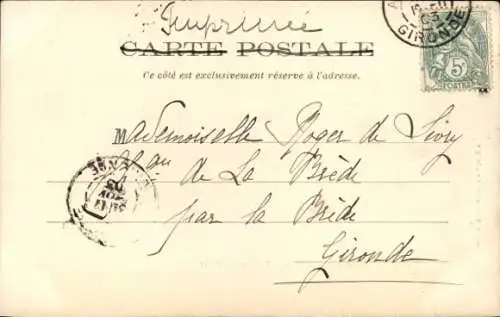 Imprimée
CARTE POSTALE
Ce côté est exclusivement réservé à l'adresse.
GIRONDE
5
POSTES
Mademoiselle Roger de Sivry
Chau de La Brède
par la Brède
Gironde